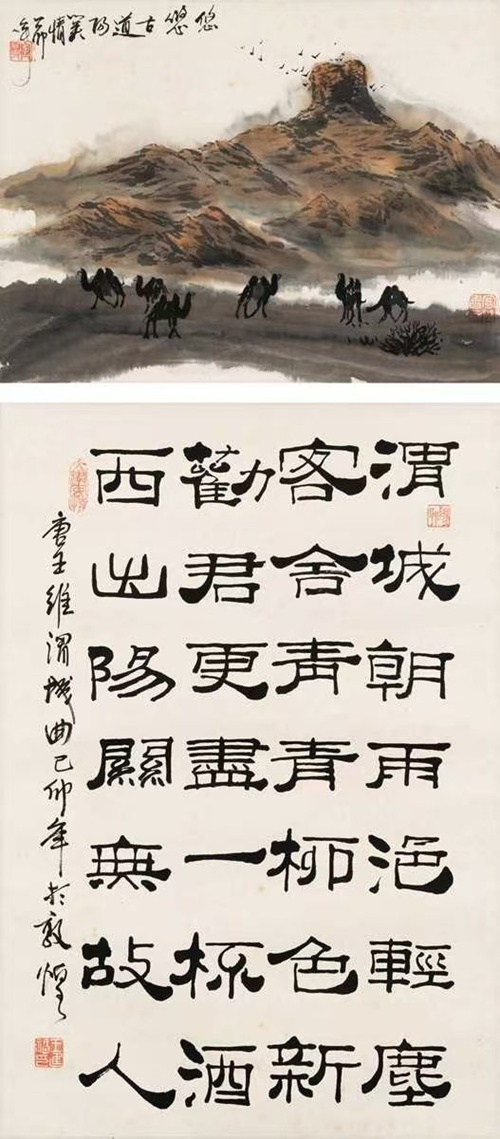 悠悠古道阳关情
渭城朝雨浥輕塵
客舍青青柳色新
勸君更盡一杯酒
西出陽關無故人
唐王維渭城曲己卯年於敦煌